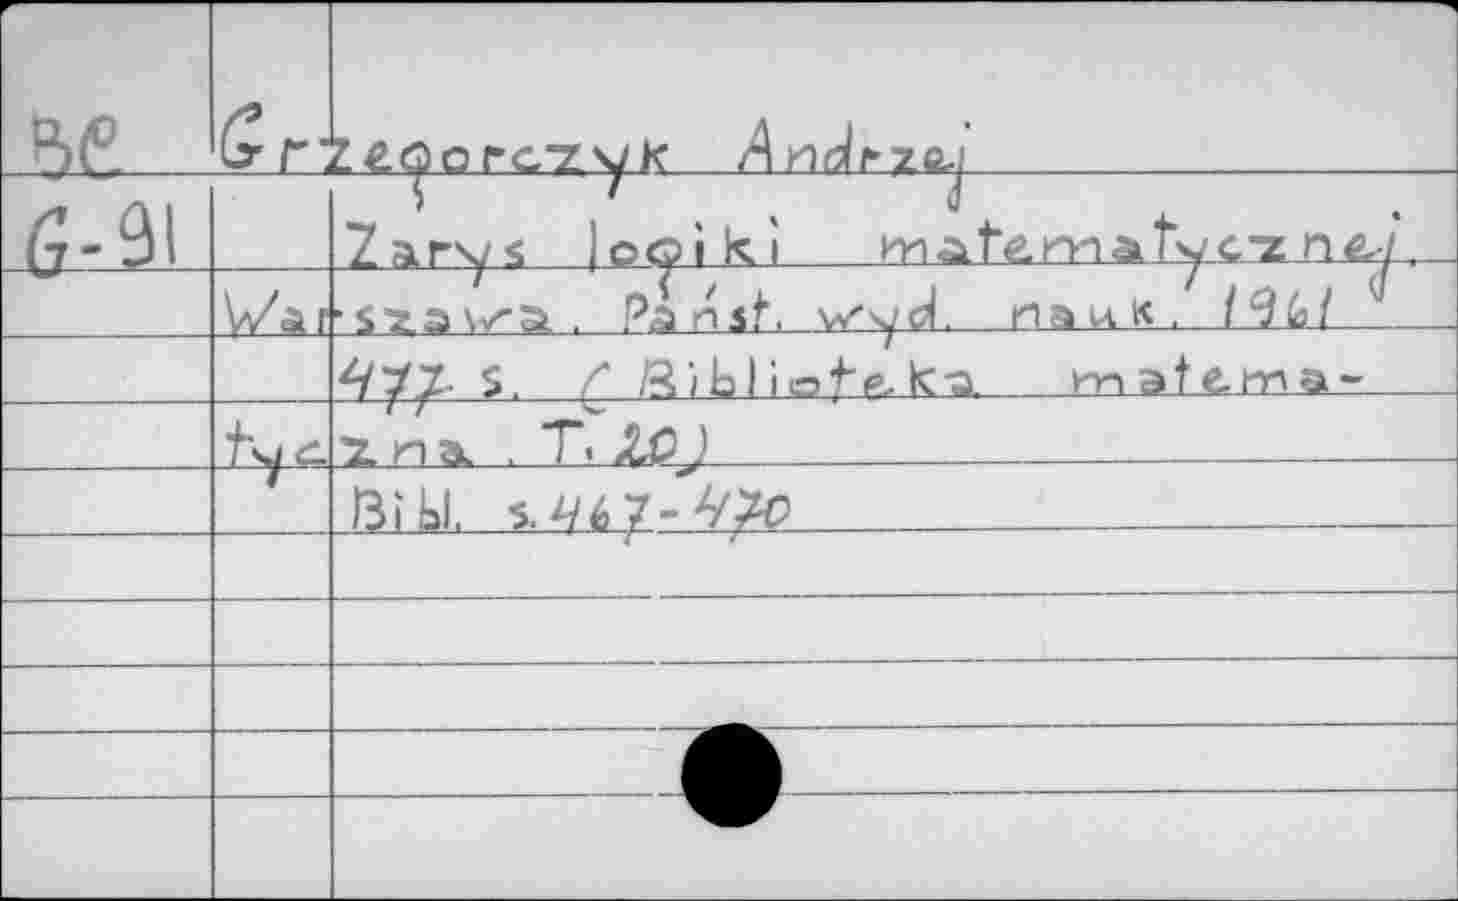 ВС Grzegorczyk Andrzej
G-91 Zarys logiki matematycznej.
Warszawa. Państ. wyd. nauk. 1961
477 s. (Biblioteka matema-
tyczna. T. 20)
Bibl. s. 467-470